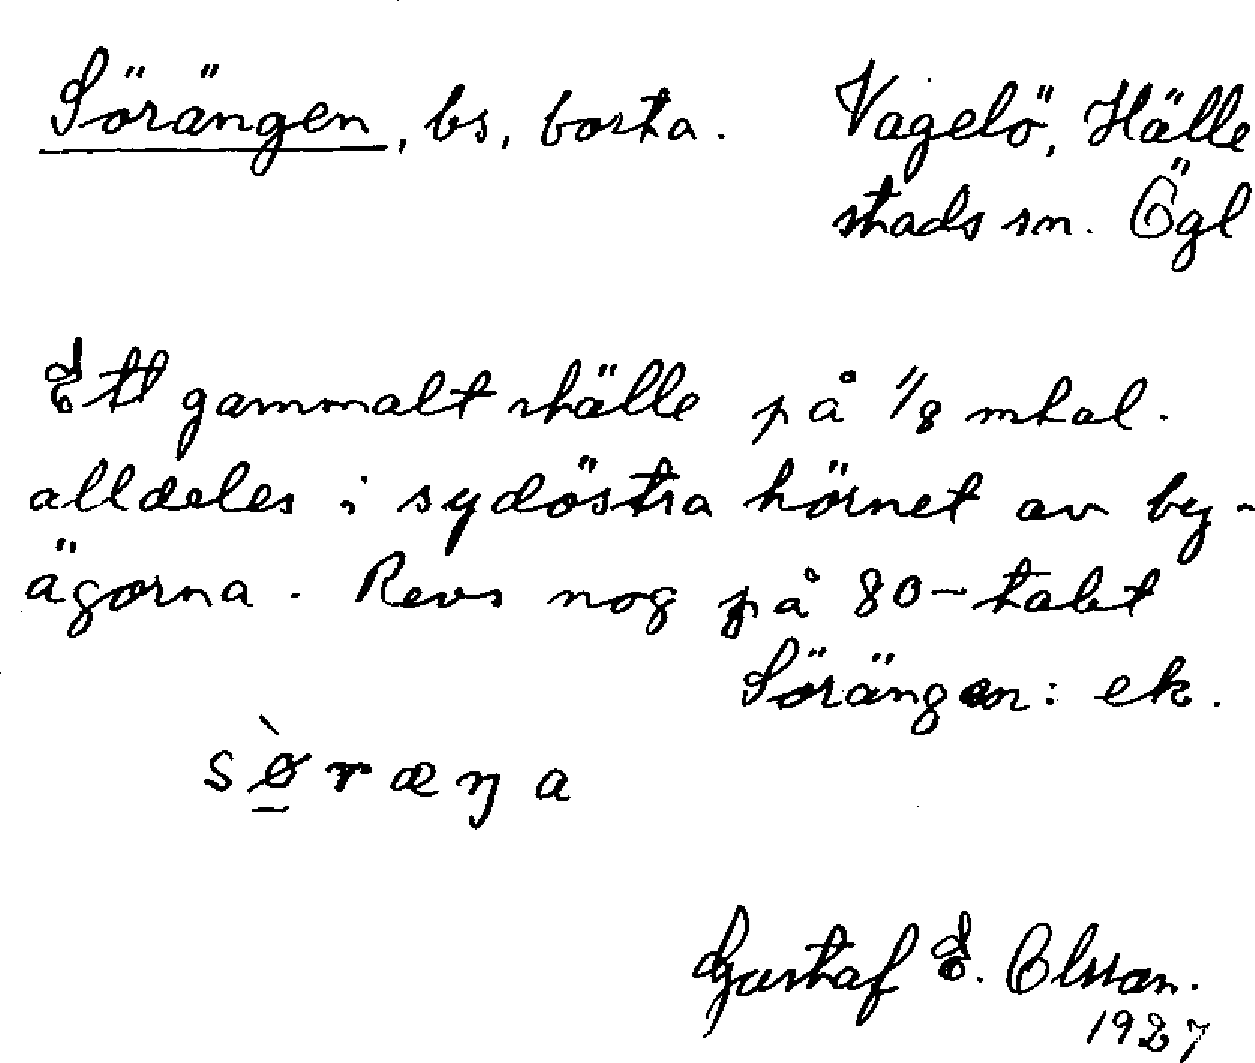 Sörängen, bs, borta. Vagelö, Hälle
stads sn. Ögl
Ett gammalt ställe på 1/8 mtal.
alldeles i sydöstra hörnet av by-
ägorna. Revs nog på 80-talet
Sörängen: ek.
sø̀ræŋa
Gustaf E. Olsson.
1927